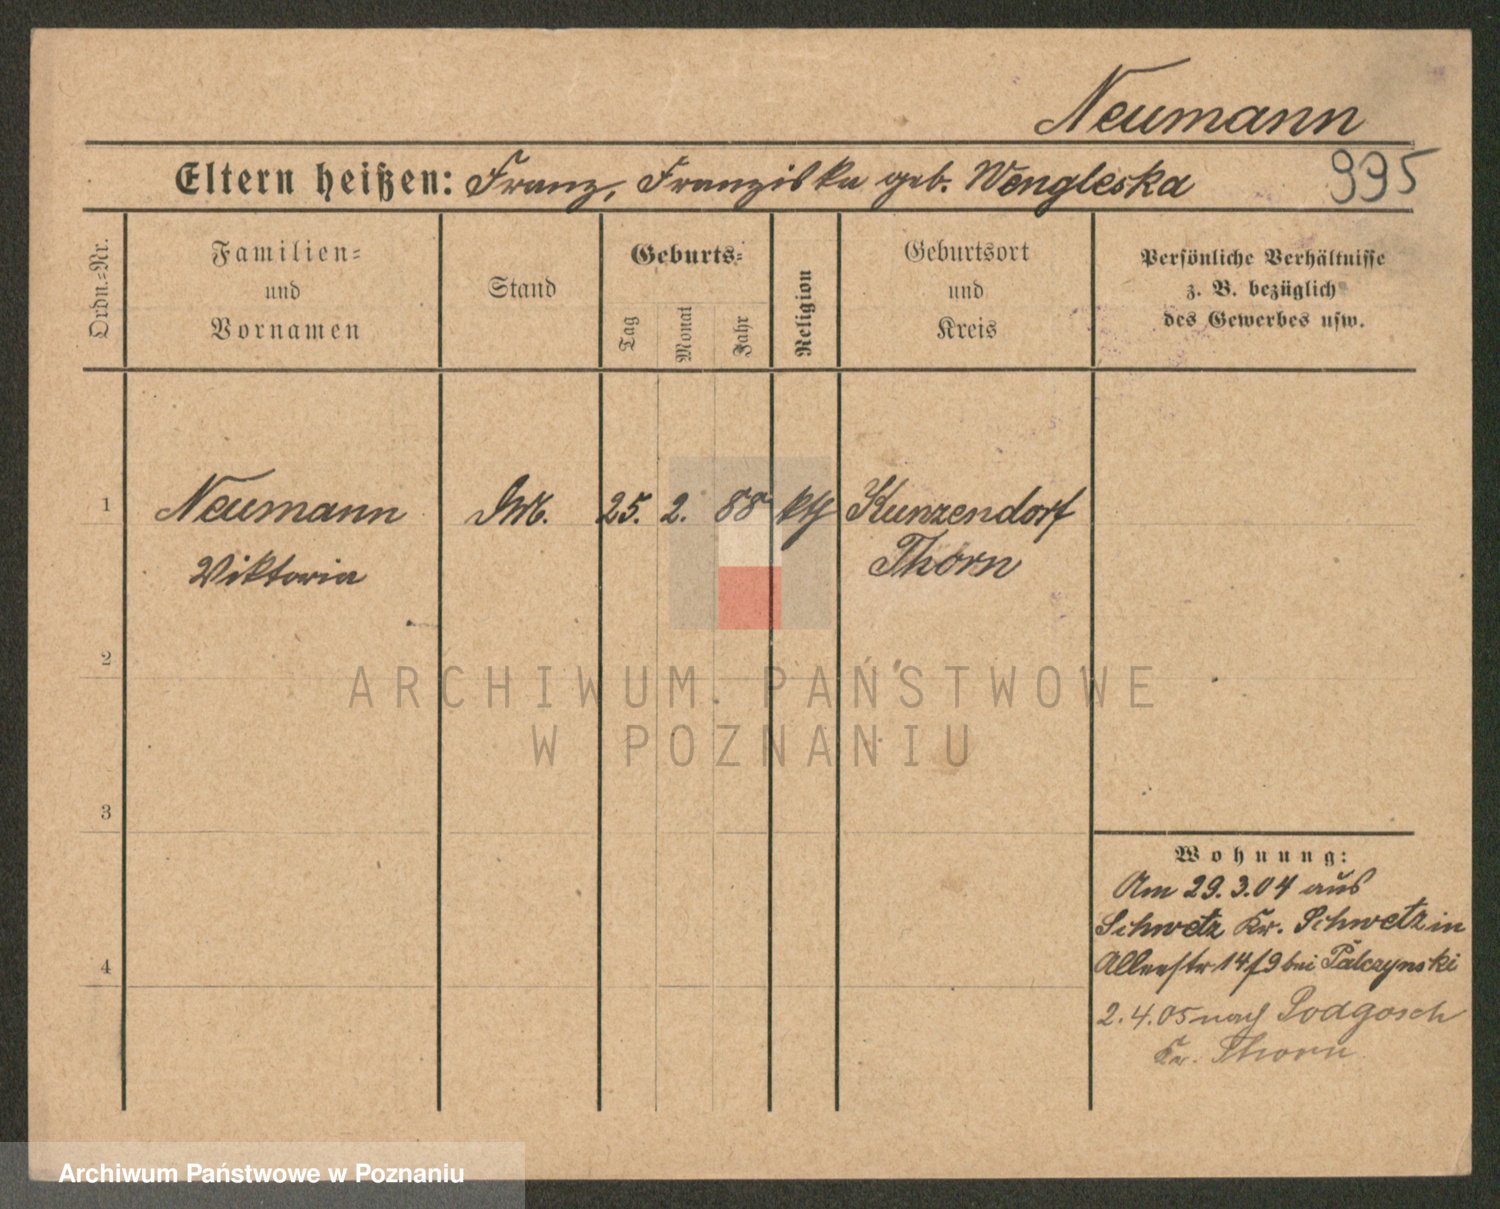 Neumann
Eltern heißen: Franz, Franziska geb. Wengleska 995
Ordn.-Nr.
Familien-
und
Vornamen
Stand
Geburts-
Tag
Monat
Jahr
Religion
Geburtsort
und
Kreis
Persönliche Verhältnisse
z. B. bezüglich
des Gewerbes usw.
1 Neumann 25. 2. 88 kth Kunzendorf
Viktoria Thorn
2
ARCHIWUM PAŃSTWOWE
W POZNANIU
3
Wohnung:
Am 29.3.04 aus
Schwetz Kr. Schwetz in
14/9 bei Palczynski
4
2.4.05 nach Podgosch
Kr. Thorn
Archiwum Państwowe w Poznaniu